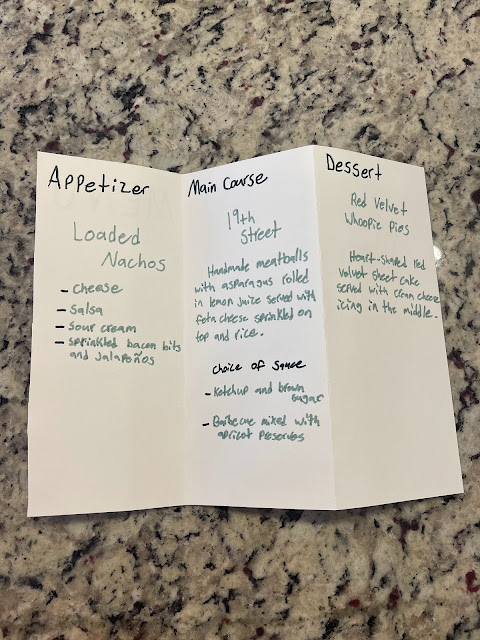 Appetizer
Loaded
Nachos
- cheese
- salsa
- sour cream
- sprinkled bacon bits
and jalapeños
Main Course
19th
Street
Handmade meatballs
with asparagus rolled
in lemon juice served with
feta cheese sprinkled on
top and rice.
choice of sauce
- Ketchup and brown
sugar
- Barbecue mixed with
apricot preserves
Dessert
Red Velvet
Whoopie Pies
Heart-shaped red
velvet sheet cake
served with cream cheese
icing in the middle.